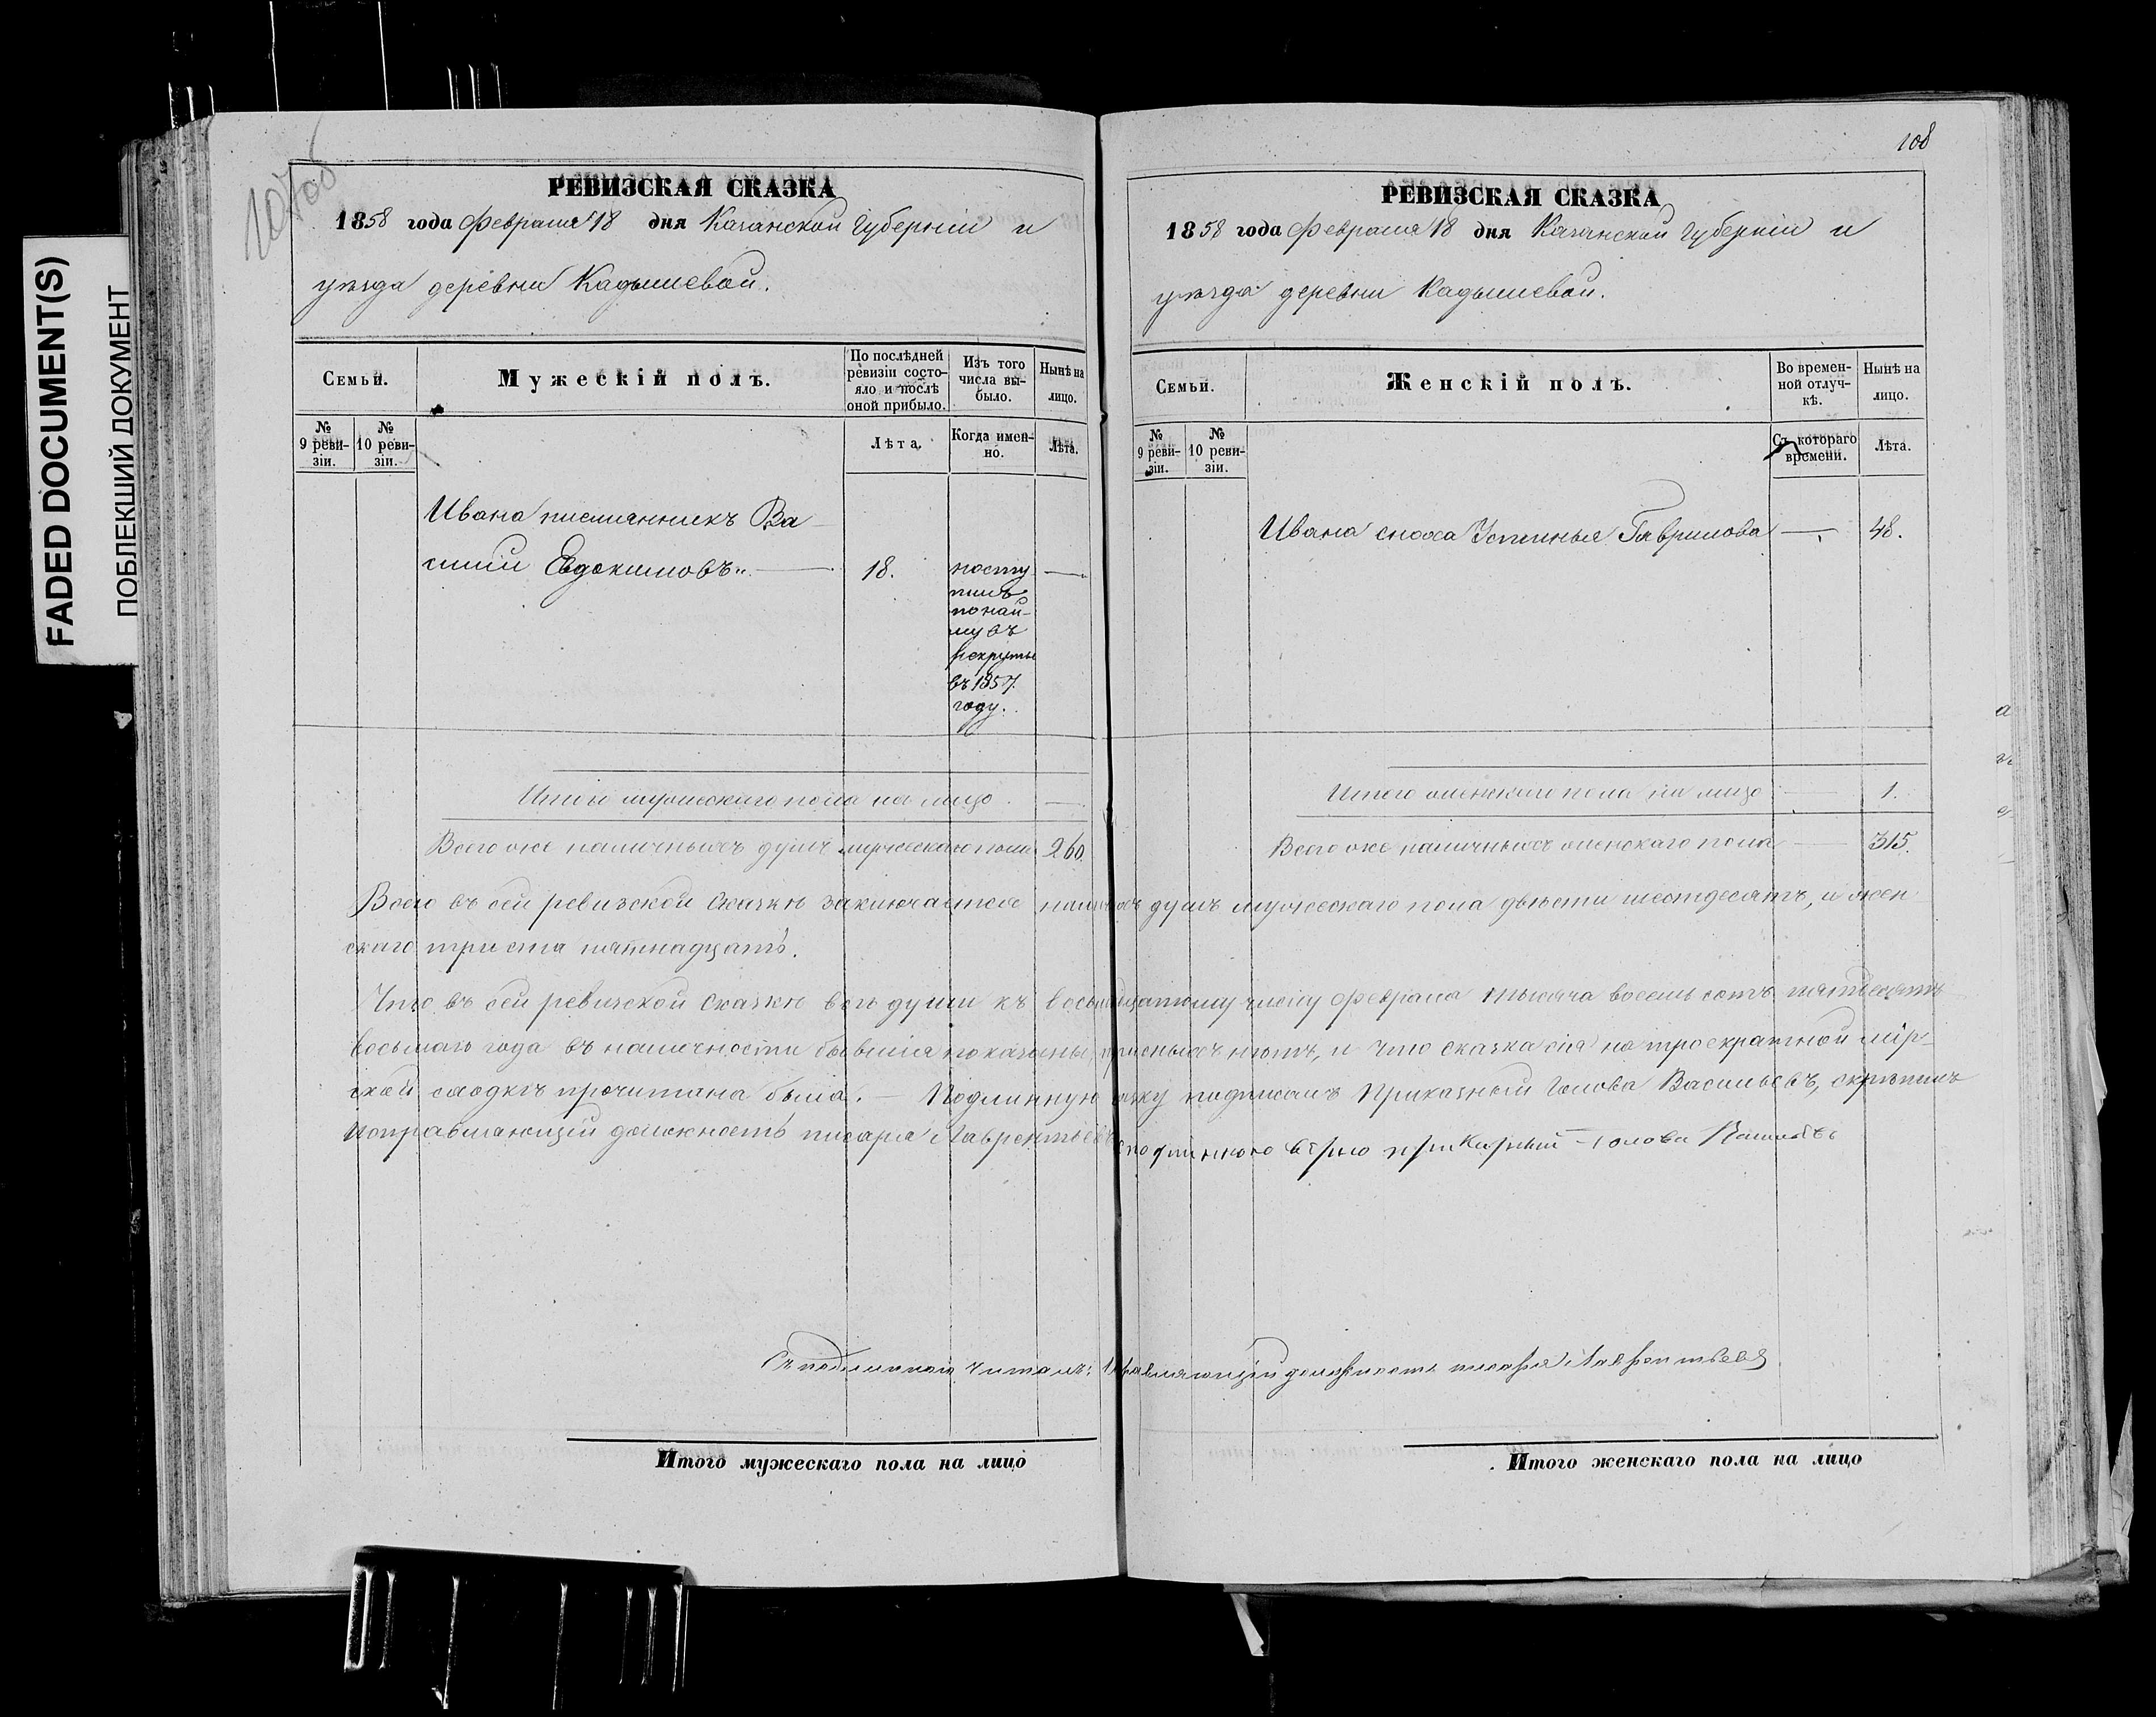 FADED DOCUMENT(S)
ПОБЛЕКШИЙ ДОКУМЕНТ
РЕВИЗСКАЯ СКАЗКА
1858 года Февраля 18 дня Казанской Губерніи и
уѣзда деревни Кадышевой.
Семьи.
Мужескій полъ.
По послѣдней
ревизіи состо-
яло и послѣ
оной прибыло.
Изъ того
числа вы-
было.
Нынѣ на
лицо.
№
9 реви-
зіи.
№
10 реви-
зіи.
Лѣта.
Когда имен-
но.
Лѣта.
Ивана племянникъ Ва-
силій Евдокимовъ — 18. —
посту
пилъ
по най-
му въ
рекруты
въ 1857
году.
Итого мужескаго пола на лицо —
Всего же наличныхъ душъ мужескаго пола 260.
108
РЕВИЗСКАЯ СКАЗКА
1858 года Февраля 18 дня Казанской Губерніи и
уѣзда деревни Кадышевой.
Семьи.
Женскій полъ.
Во времен-
ной отлуч-
кѣ.
Нынѣ на
лицо.
№
9 реви-
зіи.
№
10 реви-
зіи.
Съ котораго
времени.
Лѣта.
Ивана сноха Устинья Гаврилова — 48.
Итого женскаго пола на лицо — 1.
Всего же наличныхъ женскаго пола — 315.
Всего въ сей ревизской сказкѣ заключается душъ мужескаго пола двѣсти шестдесятъ, и жен-
скаго триста пятнадцать.
Что въ сей ревизской сказкѣ всѣ души къ числу февраля тысяча восемь сотъ пятдесятъ
восьмаго года въ наличности бывшія показаны, нѣтъ, и что сказка сія на троекратной мір-
ской сходкѣ прочитана была. — Подлинную подписалъ Приказный Голова Васильевъ, скрѣпилъ
исправляющій должность писаря Лаврентьевъ
подлинною вѣрно приказный Голова
Съ подлинною читалъ: исправляющій должность писаря Лаврентьевъ
Итого мужескаго пола на лицо
Итого женскаго пола на лицо